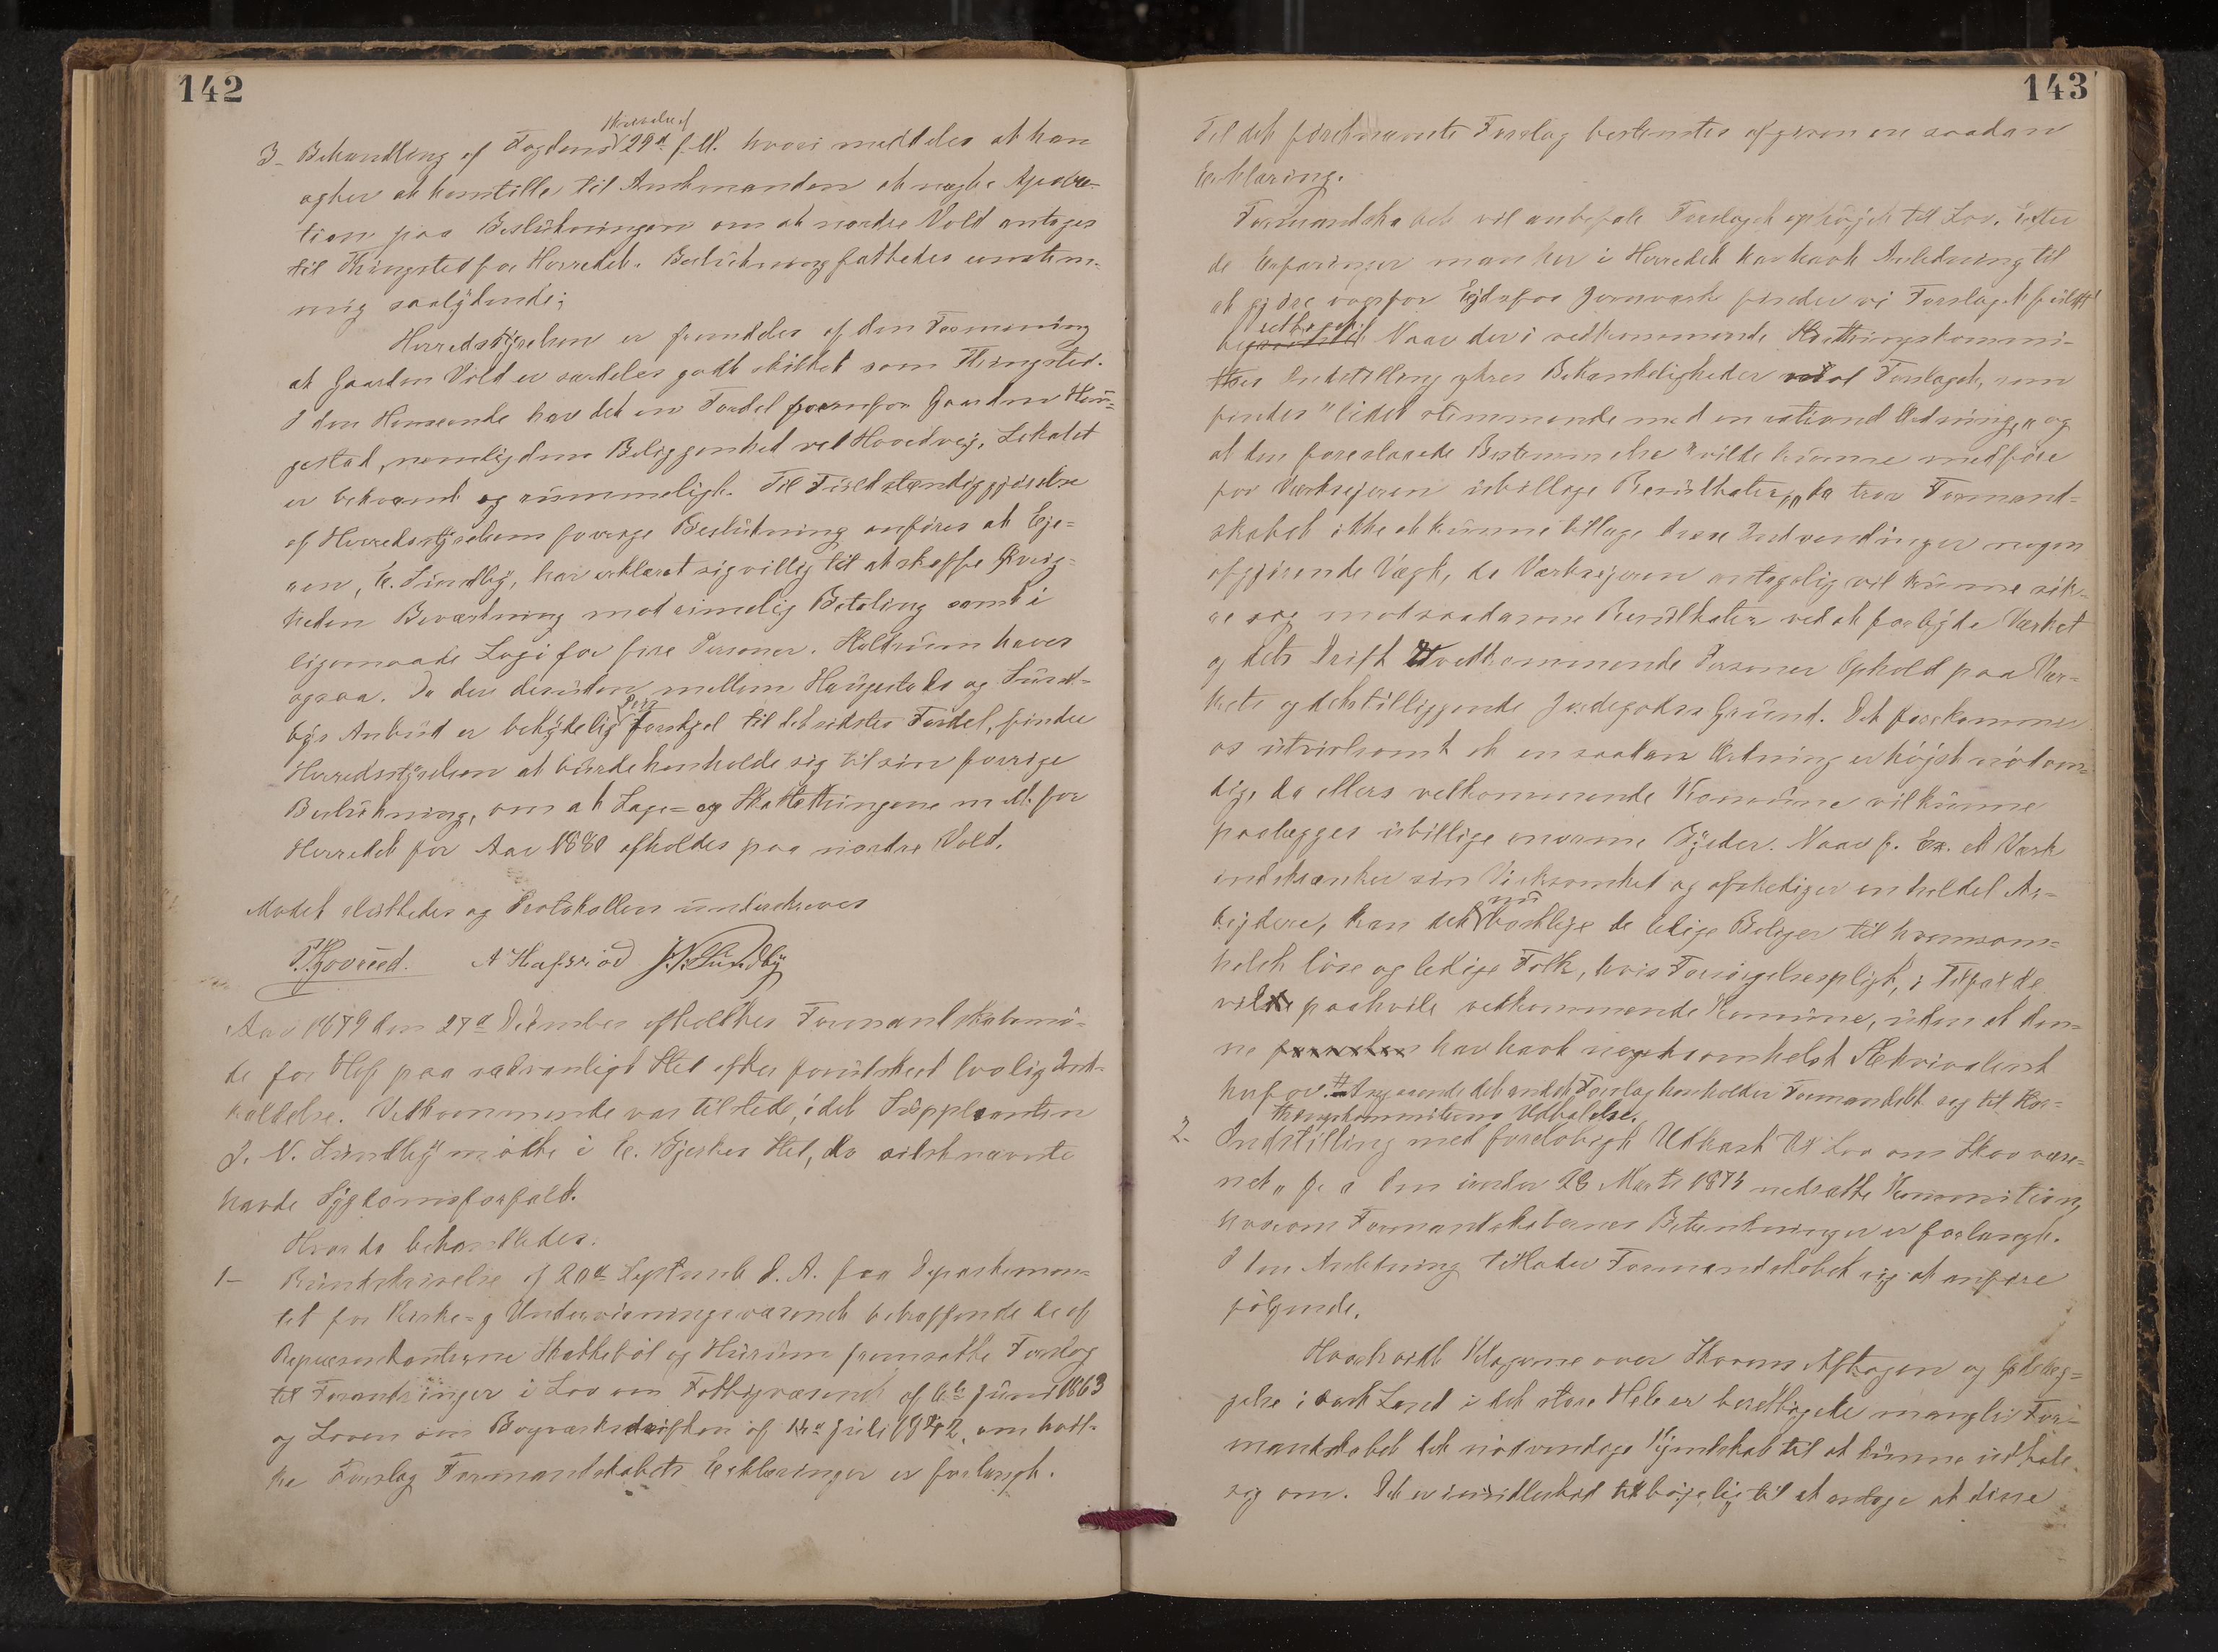 142
Skrivelse af
3_ Behandling af Fogdens 29de f. M. hvori meddeles at han
agter at henstille til Amtmanden at nægte Aproba-
tion paa Beslutningen om at nordre Vold antages
til Thingsted for Herredet. Beslutning fattedes enstem-
mig saalydende;
Herredsstyrelsen er fremdeles af den Formening
at Gaarden Vold er særdeles godt skikket som Thingsted.
I den Henseende har det en Fordel fremfor Gaarden Hau-
gestad, nemlig dens Beliggenhed ved Hovedvej, Lokalet
er bekvemt og rummeligt. Til Fuldstændiggjørelse
af Herredsstyrelsens forrige Beslutning anføres at Eje-
ren, E. Sundby, har erklæret sig villig til at skaffe Øvrig-
heden Beværtning mod rimelig Betaling samt i
ligemaade Logi for fire Personer. Heltrum haves
ogsaa. Da der desuden mellem Haugestads og Sund-
Pris
bys Anbud er betydelig forskjel til det sidstes Fordel, finder
Herredsstyrelsen at burde henholde sig til sin forrige
Beslutning, om at Sage- og Skattethingene m. M. for
Herredet for Aar 1880 afholdes paa nordre Vold.
Mødet sluttedes og Protokollen underskreves
A Hafsrød J. N. Sundby
Aar 1879 den 27de December afholdtes Formandskabsmø-
de for Hof paa sædvanligt Sted efter forudskeet lovlig Ind-
kaldelse. Vedkommende var tilstede, idet Suppleanten
J. N. Sundby mødte i E. Gjerkes Sted, da sidstnævnte
havde Sygdomsforfald.
Hvorda behandledes:
1- Rundskrivelse af 20de Septemb d. A. fra Departemen-
tet for Kirke- og Undervisningsvæsenet betræffende de af
Repræsentanterne Skattebøl og Huru̇m fremsatte Forslag
til Forandringer i Lov om Fattigvæsenet af 6te Juni 1863
og Loven om Bergværksdriften af 14de Juli 1842, om hvil-
ke Forslag Formandskabets Erklæringer er forlangt.
143
Til det førstnævnte Forslag bestemtes afgiven en saadan
Erklæring.
Formandskabet vil anbefale Forslaget ophøjet til Lov. Efter
de Erfaringer man her i Herredet har havt Anledning til
at gjøre ovenfor Ejdsfos Jernværk finder vi Forslaget fuldt
beføiet. Naar der i vedkommende Stortingskommi-
ttes Indstilling ytres Betænkeligheder ved Forslaget, som
findes "lidet stemmende med en rationel Ordning," og
at den foreslaaede Bestemmelse "vilde kunne medføre
for Værksejeren ubillige Resultater," da tror Formand-
skabet ikke at kunne tillægge disse Indvendinger nogen
afgjørende Vægt, da Værksejeren antagelig vil kunne sik-
re sig mod saadanne Resultater ved at forbyde Værket
og dets Drift uvedkommende Personer Ophold paa Vær-
kets og dets tilliggende Jordegodses Grund. Det forekommer
os utvivlsomt at en saadan Ordning er højst nødven-
dig, da ellers vedkommende Kommune vil kunne
paalægges ubillige enorme Byrder. Naar f. Ex. et Værk
indskrænker sin Virksomhed og afskediger en heldel Ar-
nu
bejdere, kan det bortleje de ledige Boliger til hvemsom-
helst løse og ledige Folk, hvis Forsørgelsespligt, i Tilfælde
vil paahvile vedkommende Kommune, uden at den-
ne har havt nogetsomhelst Ækvivalent
herfor. # Angaaende det andet Forslag henholder Formandsk. sig til Stor-
thingskommiteens Udtalelse.
2. Indstilling med foreløbigt Udkast til Lov om Skovvæse-
net, fra den under 28 Marts 1874 nedsatte Kommission,
hvorom Formandskabernes Betænkninger er forlangt.
I den Anledning tillader Formandskabet sig at anføre
følgende.
Hvorvidt Klagerne over Skovens Aftagen og Ødelæg-
gelse i vort Land i det store Hele er berettigede mangler For-
mandskabet det nødvendige Kjendskab til at kunne udtale
sig om. Det er imidlertid tilbøjelig til at antage at disse